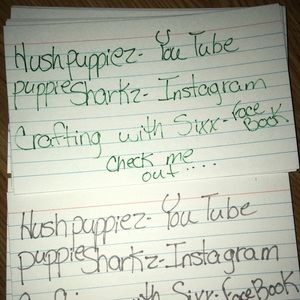 Hushpuppiez- YouTube
puppieSharkz- Instagram
Crafting with Sixx- FaceBook
Check me
out.....
Hushpuppiez- YouTube
puppieSharkz-Instagram
with Sixx- FaceBook